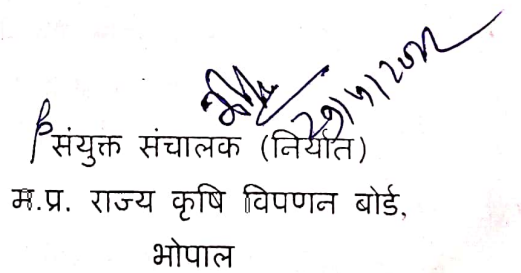 संयुक्त संचालक (निर्यात)
म.प्र. राज्य कृषि विपणन बोर्ड,
भोपाल